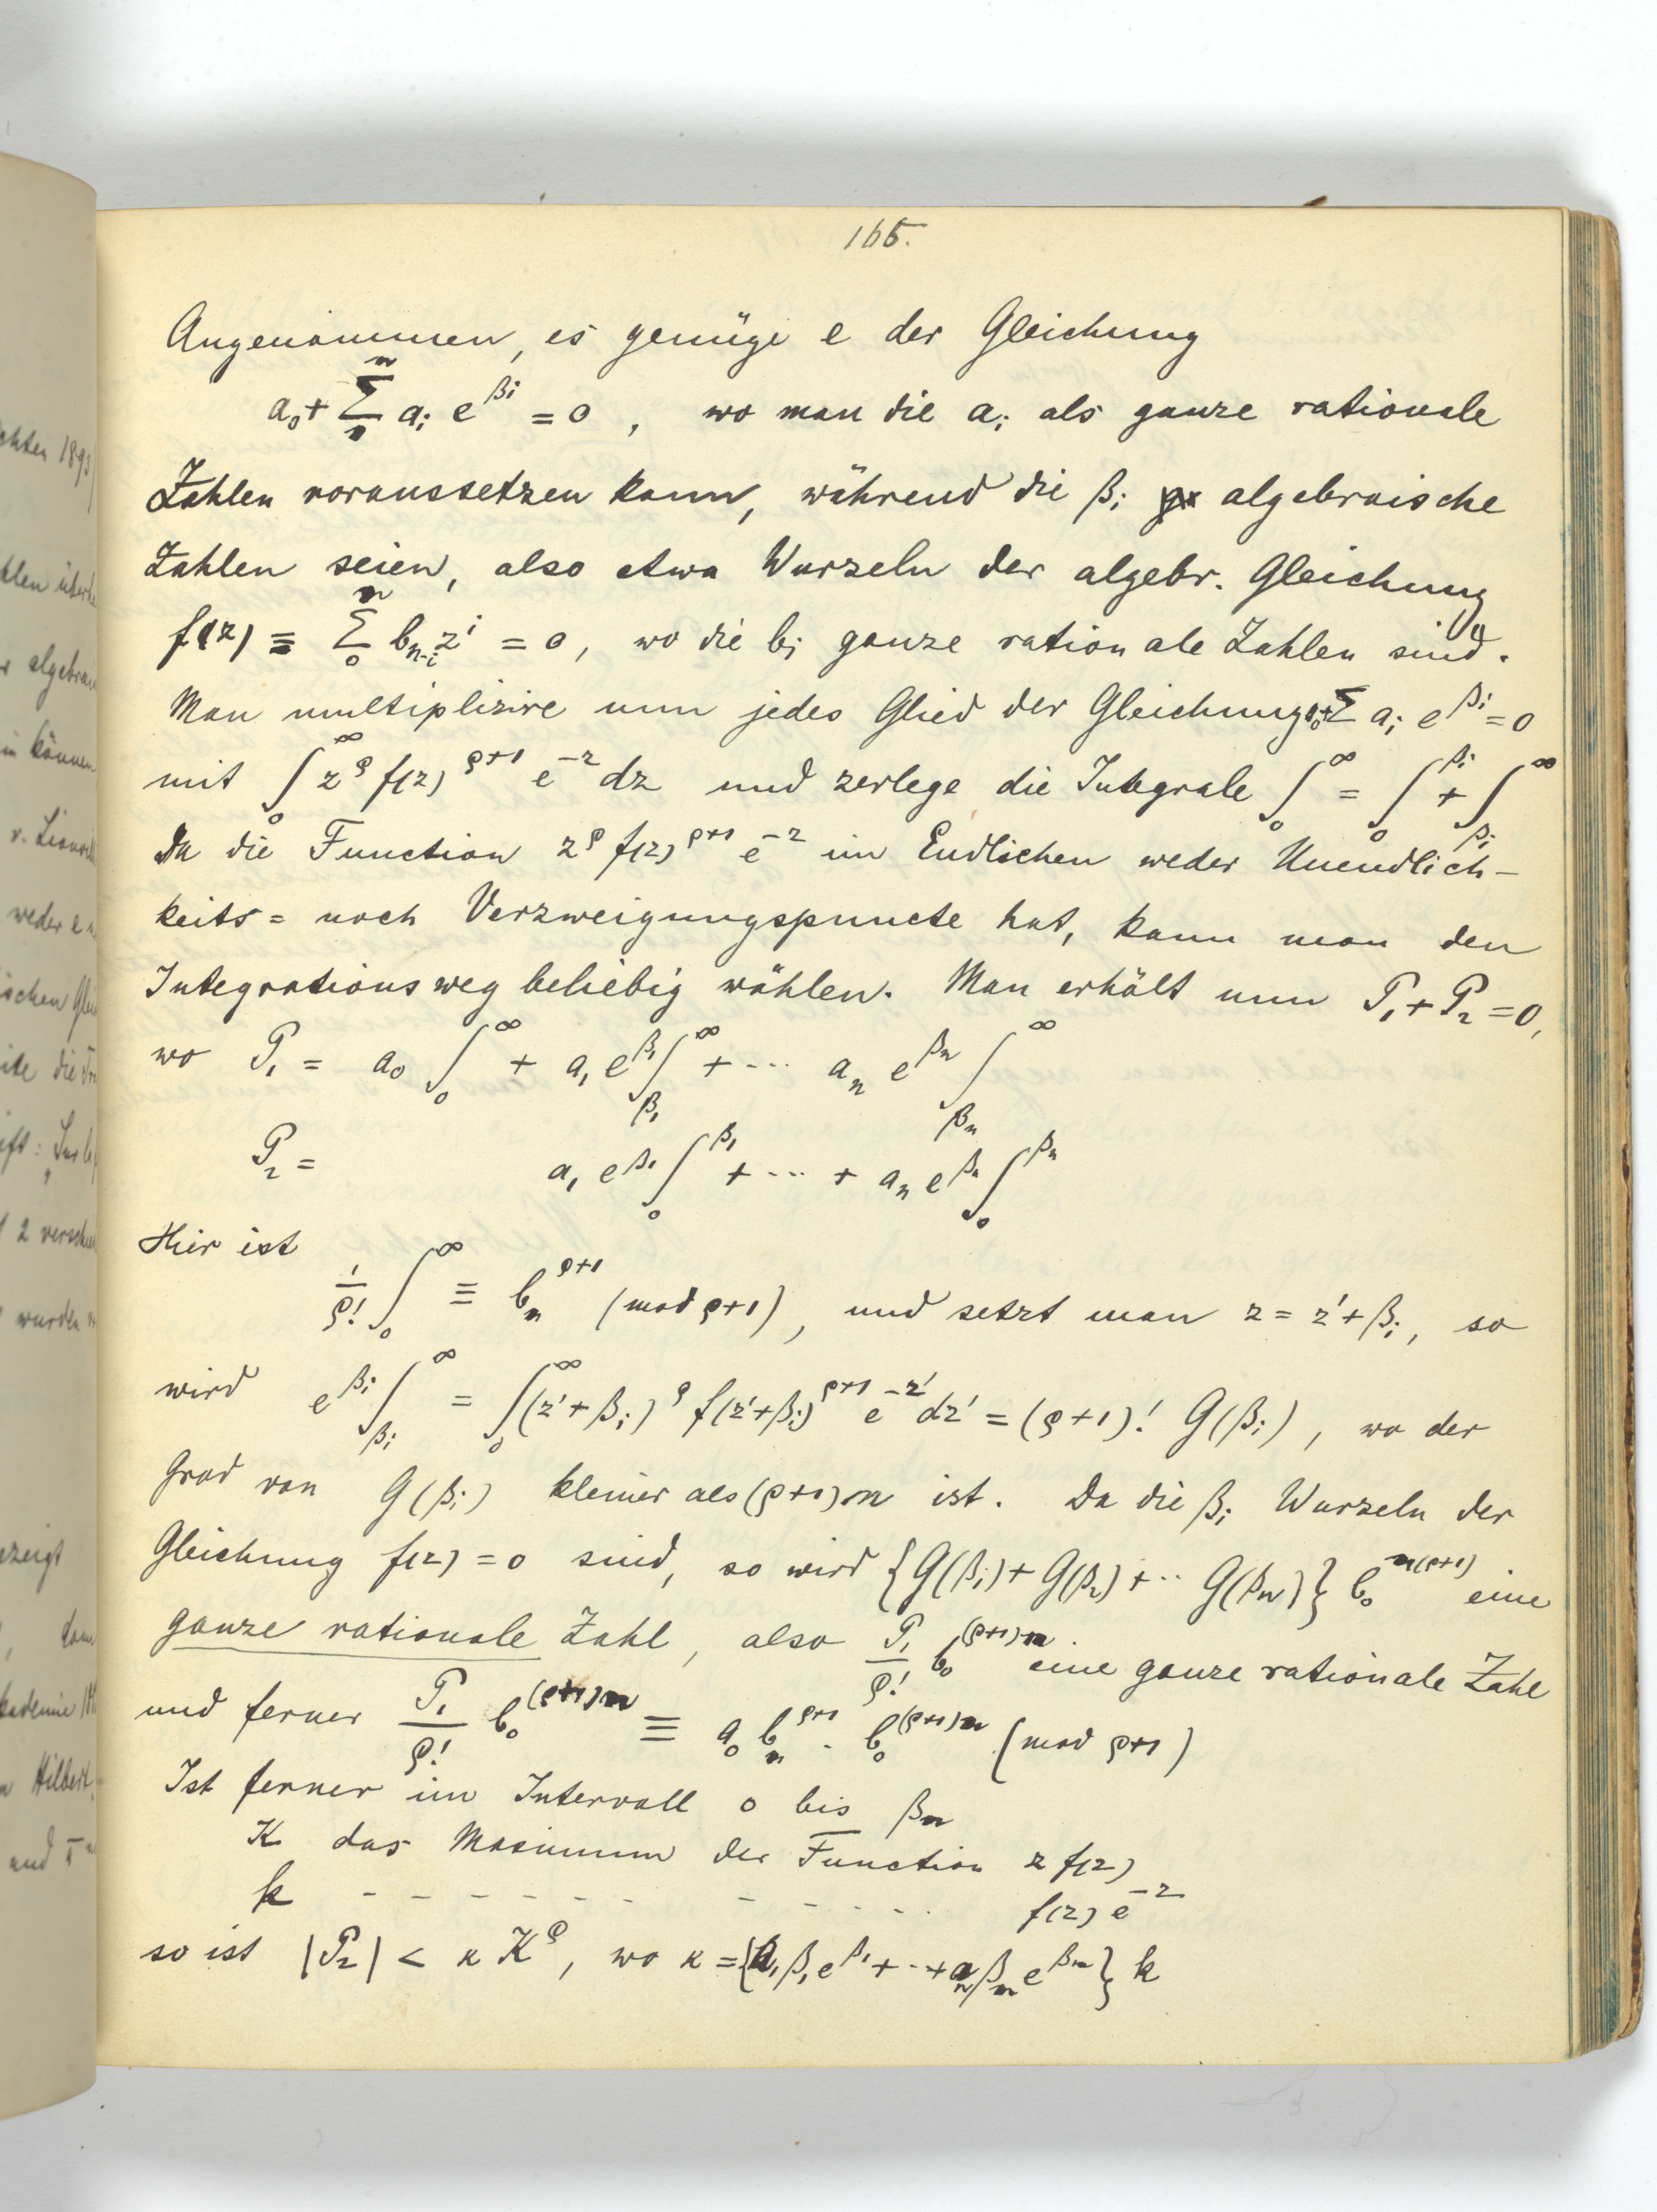 165.
Angenommen, es genüge e der Gleichung
a₀ + Σ aᵢ e^{βᵢ} = 0 , wo man die aᵢ als ganze rationale
Zahlen voraussetzen kann, während die βᵢ algebraische
Zahlen seien, also etwa Wurzeln der algebr. Gleichung
f(z) = Σ₀ⁿ b_{n-i} zⁱ = 0, wo die bᵢ ganze rationale Zahlen sind.
Man multiplizire nun jedes Glied der Gleichung a₀+Σ aᵢ e^{βᵢ} = 0
mit ∫₀^∞ z^ρ f(z)^{ρ+1} e^{-z} dz und zerlege die Integrale ∫₀^∞ = ∫₀^{βᵢ} + ∫_{βᵢ}^∞
Da die Function z^ρ f(z)^{ρ+1} e^{-z} im Endlichen weder Unendlich-
keits= noch Verzweigungspuncte hat, kann man den
Integrationsweg beliebig wählen. Man erhält nun P₁ + P₂ = 0,
wo P₁ = a₀ ∫₀^∞ + a₁ e^{β₁} ∫_{β₁}^∞ + ··· aₙ e^{βₙ} ∫_{βₙ}^∞
P₂ = a₁ e^{β₁} ∫₀^{β₁} + ··· + aₙ e^{βₙ} ∫₀^{βₙ}
Hier ist
1/ρ! ∫₀^∞ ≡ bₙ^{ρ+1} (mod ρ+1), und setzt man z = z' + βᵢ, so
wird e^{βᵢ} ∫_{βᵢ}^∞ = ∫₀^∞ (z'+βᵢ)^ρ f(z'+βᵢ)^{ρ+1} e^{-z'} dz' = (ρ+1)! G(βᵢ), wo der
Grad von G(βᵢ) kleiner als (ρ+1)n ist. Da die βᵢ Wurzeln der
Gleichung f(z) = 0 sind, so wird {G(β₁) + G(β₂) + ·· G(βₙ)} b₀^{n(ρ+1)} eine
ganze rationale Zahl, also P₁/ρ! b₀^{(ρ+1)n} eine ganze rationale Zahl
und ferner P₁/ρ! b₀^{(ρ+1)n} ≡ a₀ bₙ^{ρ+1} · b₀^{(ρ+1)n} (mod ρ+1)
Ist ferner im Intervall 0 bis βₙ
K das Maximum der Function z f(z)
k - - - - - - - - - - - f(z) e^{-z}
so ist |P₂| < κ K^ρ, wo κ = {a₁β₁e^{β₁} + ·· + aₙβₙe^{βₙ}} k